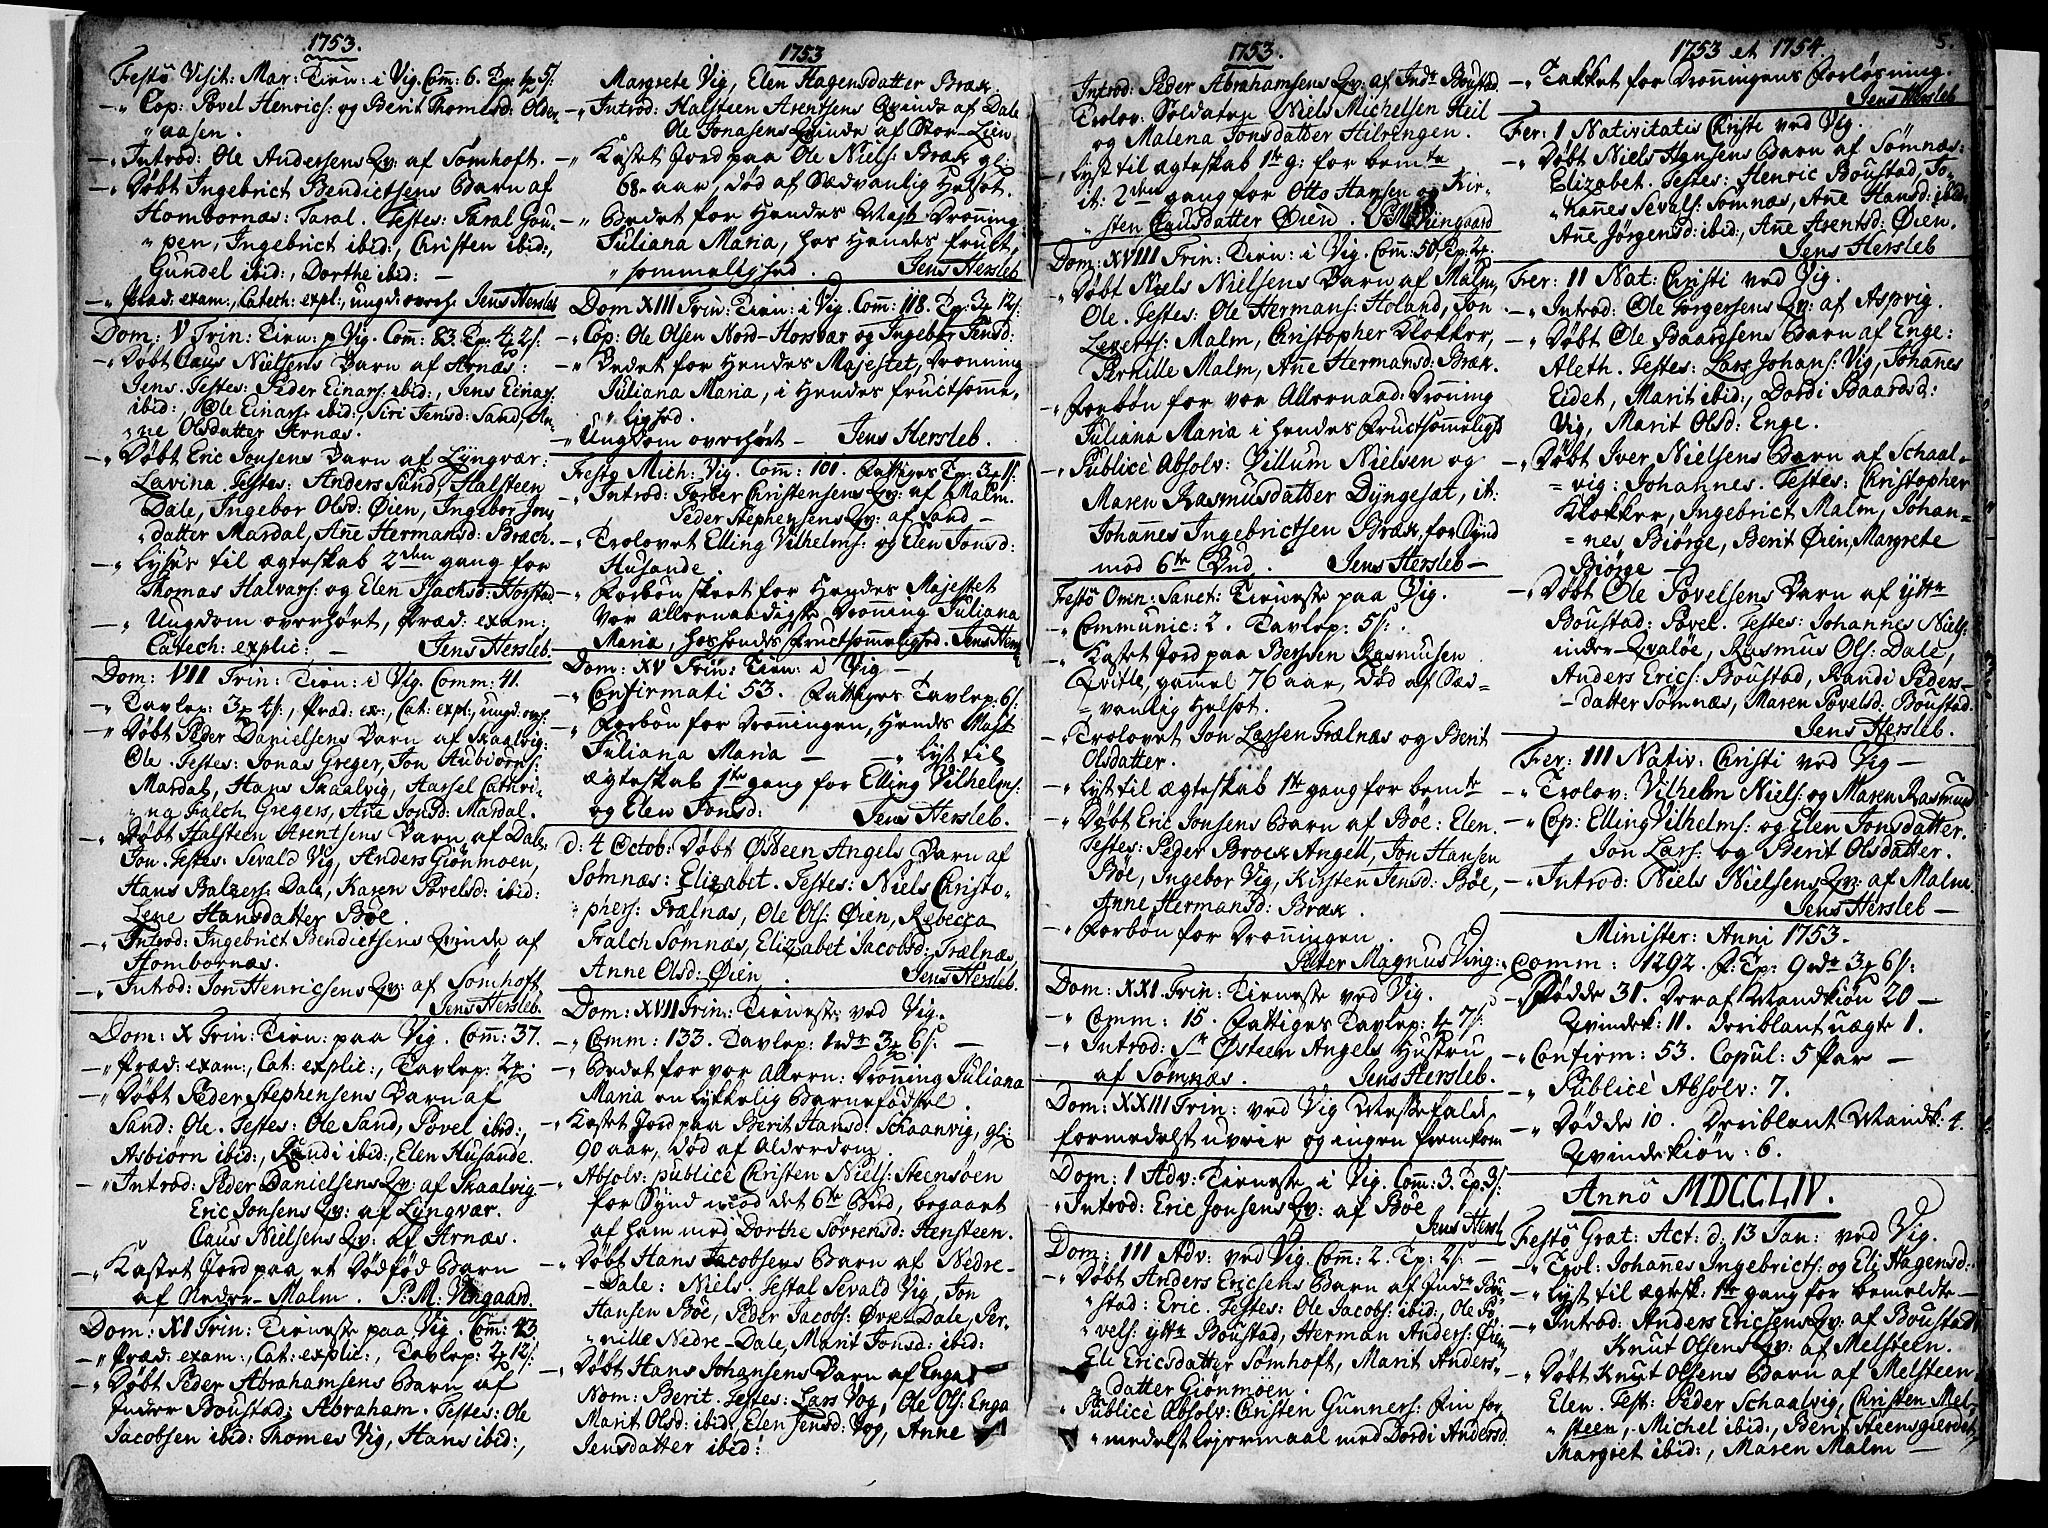 1753.
Festo Visit: Mar: Tien: i Vig. Comm: 6. Tp: 1 5/:
Cop: Povel Henrics: og Berit Thomesd: Older-
"aasen.
Introd: Ole Andersens Qv: af Sømhoft.
Døbt Ingebrict Bendictsens Barn af
Hombornæs: Taral. Testes: Taral Gou-
"pen, Ingebrict ibid:, Christen ibid:,
Gundel ibid:, Dorthe ibid: —
Præd: exam:, Catech: expl:, ungd: overh: Jens Hersleb
Dom: V Trin: Tien: p Vig. Comm: 83. Tp: 4 2/:
Døbt Claus Nielsens Barn af Arnæs:
Jens: Testes: Peder Einars: ibid:, Jens Einars:
ibid:, Ole Einars: ibid:, Siri Jensd: Sand, An-
"ne Olsdatter Arnæs.
Døbt Eric Jonsens Barn af Lyngvær:
Lavina. Testes: Anders Sund, Halsteen
Dale, Ingebor Olsd: Øien, Ingebor Jons
"datter Mardal, Añe Hermansd: Bræch.
Lyses til ægteskab 2den gang for
Thomas Halvars: og Elen Isachsd: Horstad.
Ungdom overhørt, Præd: exam:,
Catech: explic: — Jens Hersleb
Dom: VII Trin: Tien: i Vig. Comm: 41.
Tavlep: 3 4/:, Præd: ex:, Cat: expl:, ungd: ovh:
Døbt Peder Danielsens Barn af Skaalvig:
Ole. Testes: Jonas Greger, Jon Aubiørns:
Mardal, Hans Skaalvig, Aarsel Cathri-
"na Falch Gregers, Añe Jonsd: Mardal.
Døbt Halsteen Arentsens Barn af Dale:
Jon. Testes: Sevald Vig, Anders Giønmoen,
Hans Balzers: Dale, Karen Povelsd: ibid:
Lene Hansdatter Bøe.
Introd: Ingebrict Bendictsens Qvinde af
Hombornæs.
Introd: Jon Henricsens Qv: af Sømhoft.
Jens Hersleb.
Dom: X Trin: Tien: paa Vig. Comm: 37.
Præd: exam:, Cat: explic:, Tavlep: 2
Døbt Peder Stephensens Barn af
Sand: Ole. Testes: Ole Sand, Povel ibid:,
Asbiørn ibid:, Randi ibid:, Elen Husande.
Introd: Peder Danielsens Qv: af Skaalvig
Eric Jonsens Qv: af Lyngvær.
Claus Nielsens Qv: af Arnæs.
Kastet Jord paa et Dødfød Barn
af Neder-Malm. P: M: Vingaard.
Dom: XI Trin: Tieneste paa Vig. Comm: 43
Præd: exam:, Cat: explic:, Tavlep: 2 12/:
Døbt Peder Abrahamsens Barn af
Inder Boustad: Abraham. Testes: Ole
Jacobsen ibid: Thomes Vig, Hans ibid:,
1753
Margrete Vig, Elen Hagensdatter Bræk.
Introd: Halsteen Arentsens Qvinde af Dale
Ole Jonasens Qvinde af Stor-Lien
Kastet Jord paa Ole Niels: Bræk gl:
68 aar, død af Sædvanlig Helsot.
Bedet for Hendes Majst Dronning
Juliana Maria, hos Hendes fruct-
"sommelighed. Jens Hersleb
Dom XIII Trin: Tien: i Vig. Comm: 118. Tp: 3 12/:
Cop: Ole Olsen Nord-Horsvær og Ingebor Jensd:
Bedet for Hendes Majestet, Dronning
Juliana Maria, i Hendes fructsomme-
"lighed.
Ungdom overhørt — Jens Hersleb.
Festo Mich: Vig. Comm: 101. Fattiges Tp: 3 11/:
Introd: Torber Christensens Qv: af Malm.
Peder Stephensens Qv: af Sand —
Trolovet Elling Vilhelms: og Elen Jonsd:
Husande.
Forbøn skeet for Hendes Majestet
Vor Allernaadigste Dronning Juliana
Maria, hos hendes Fructsommelighed. Jens Hersl
Dom: XV Trin: Tien: i Vig —
Confirmati 53. Fattiges Tavlep: 6/:
Forbøn for Dronningen, Hendes Majst
Juliana Maria — Lyst til
ægteskab 1te gang for Elling Vilhelms:
og Elen Jonsd: Jens Hersleb.
d: 4 Octob: Døbt Østeen Angels Barn af
Sømnæs: Elizabet. Testes: Niels Christo-
"phers: Trælnæs, Ole Ols: Øien, Rebecca
Falch Sømnæs, Elizabet Jacobsd: Trælnæs,
Anne Olsd: Øien. Jens Hersleb.
Dom: XVII Trin: Tieneste ved Vig.
Comm: 133. Tavlep: 1rdr 3 6/: —
Bedet for vor Allern: Dronning Juliana
Maria en lykkelig Barnefødsel.
Kastet Jord paa Berit Hansd: Schaanvig, gl:
90 aar, død af Alderdom.
Absolv: publicè Christen Niels: Steensøen
for Synd mod det 6te Bud, begaaet
af ham med Dorthe Sørensd: Hensteen.
Døbt Hans Jacobsens Barn af Nedre-
Dale: Niels. Testal Sevald Vig, Jon
Hansen Bøe, Peder Jacobs: Øvre-Dale, Per-
"nille Nedre-Dale, Marit Jonsd: ibid:
Døbt Hans Johansens Barn af Enga
Nom: Berit. Testes: Lars Vog, Ole Ols: Enga
Marit Olsd: ibid:, Elen Jensd: Vog, Anne
Jensdatter ibid:
1753.
Introd: Peder Abrahamsens Qv: af Indr Boustad.
Trolov: Soldaten Niels Michelsen Heil
og Malena Jonsdatter Heilringen.
Lyst til ægteskab 1te g: for bemte
it: 2den gang for Otto Hansen og Kir-
"sten Clausdatter Øien. P M Viingaard
Dom: XVIII Trin: Tien: i Vig. Comm: 50, Tp: 2
Døbt Niels Nielsens Barn af Malm,
Ole. Testes: Ole Hermans: Holand, Jon
Leverts: Malm, Christopher Klokker,
Pernille Malm, Añe Hermansd: Bræk.
Forbøn for vor Allernaad: Dronning
Juliana Maria i hendes Fructsommeligd
Publicè Absolv: Villum Nielsen og
Maren Rasmusdatter Dyngesæt, it:
Johañes Ingebrictsen Bræk, for Synd
mod 6te Bud. Jens Hersleb —
Festo Omn: Sanct: Tieneste paa Vig.
Communic: 2. Tavlep: 5/:
Kastet Jord paa Bersven Rasmusen
Qvitle, gamel 76 aar, død af Sæd=
=vanlig Helsot.
Trolovet Jon Larsen Trælnæs og Berit
Olsdatter.
Lyst til ægteskab 1te gang for bemte
Døbt Eric Jonsens Barn af Bøe: Elen.
Testes: Peder Brock Angell, Jon Hansen
Bøe, Ingebor Vig, Kirsten Jensd: Bøe,
Anne Hermansd: Bræk.
Forbøn for Droñingen.
Peter Magnus Ving:
Dom: XXI Trin: Tieneste ved Vig.
Comm: 15. Fattiges Tavlep: 1 7/:
Introd: Sr Østeen Angels Hustru
af Sømnæs. Jens Hersleb.
Dom: XXIII Trin: ved Vig Messefald,
formedelst uveir og ingen fremkom
Dom: I Adv: Tieneste i Vig. Comm: 3. Tp: 3/:
Introd: Eric Jonsens Qv: af Bøe
Jens Hersl
Dom: III Adv: ved Vig. Comm: 2. Tp: 2/: —
Døbt Anders Ericsens Barn af Indr Bou
"stad: Eric. Testes: Ole Jacobs: ibid:, Ole Po
"vels: yttr Boustad, Herman Anders: Øien,
Eli Ericsdatter Sømhoft, Marit Anders-
"datter Giønmoen.
Publicè Absolv: Christen Gunners: Fin for-
"medelst Lejermaal med Dordi Andersd:
1753 et 1754 5.
Takket for Droñingens Forløsning.
Jens Hersleb
Fer: I Nativitatis Christi ved Vig.
Døbt Niels Hansens Barn af Sømnæs:
Elizabet. Testes: Henric Boustad, Jo-
"hañes Sevals: Sømnæs, Añe Hansd: ibid:
Añe Jørgensd: ibid:, Añe Arentsd: Øien.
Jens Hersleb
Fer: II Nat: Christi ved Vig.
Introd: Ole Torgersens Qv: af Aspvig.
Døbt Ole Baardsens Barn af Enge:
Aleth. Testes: Lars Johans: Vig, Johañes
Eidet, Marit ibid:, Dordi Baardsd:
Vig, Marit Olsd: Enge.
Døbt Iver Nielsens Barn af Schaal-
=vig: Johannes. Testes: Christopher
Klokker, Ingebrict Malm, Johan=
=nes Biørge, Berit Øien, Margrete
Biørge —
Døbt Ole Povelsens Barn af yttr
Boustad: Povel. Testes: Johannes Niels:
inder-Qvaløe, Rasmus Ols: Dale,
Anders Erics: Boustad, Randi Peders-
-datter Sømnæs, Maren Povelsd: Boustad.
Jens Hersleb.
Fer: III Nativ: Christi ved Vig —
Trolov: Vilhelm Niels: og Maren Rasmusd
Cop: Elling Vilhelms: og Elen Jonsdatter.
Jon Lars: og Berit Olsdatter.
Introd: Niels Nielsens Qv: af Malm.
Jens Hersleb —
Minister: Anni 1753.
Comm: 1292. F: Tp: 9rdr 3 6/:
Fødde 31. Deraf Mandkiøn 20 —
Qvindek: 11. deriblant uægte 1.
Confirm: 53. Copul: 5 Par —
Publicè Absolv: 7.
Dødde 10. Deriblant Mandk: 4.
Qvindekiøn: 6.
Anno MDCCLIV.
Festo Grat: Act: d: 13 Jan: ved Vig.
Trol: Johañes Ingebricts: og Eli Hagensd:
Lyst til ægtesk: 1te gang for bemeldte —
Introd: Anders Ericsens Qv: af Boustad
Knut Olsens Qv: af Melsteen.
Døbt Knut Olsens Barn af Melsteen
Elen. Test: Peder Schaalvig, Christen Mel-
"steen, Michel ibid:, Berit Steensgierdet,
Margret ibid:, Maren Malm —